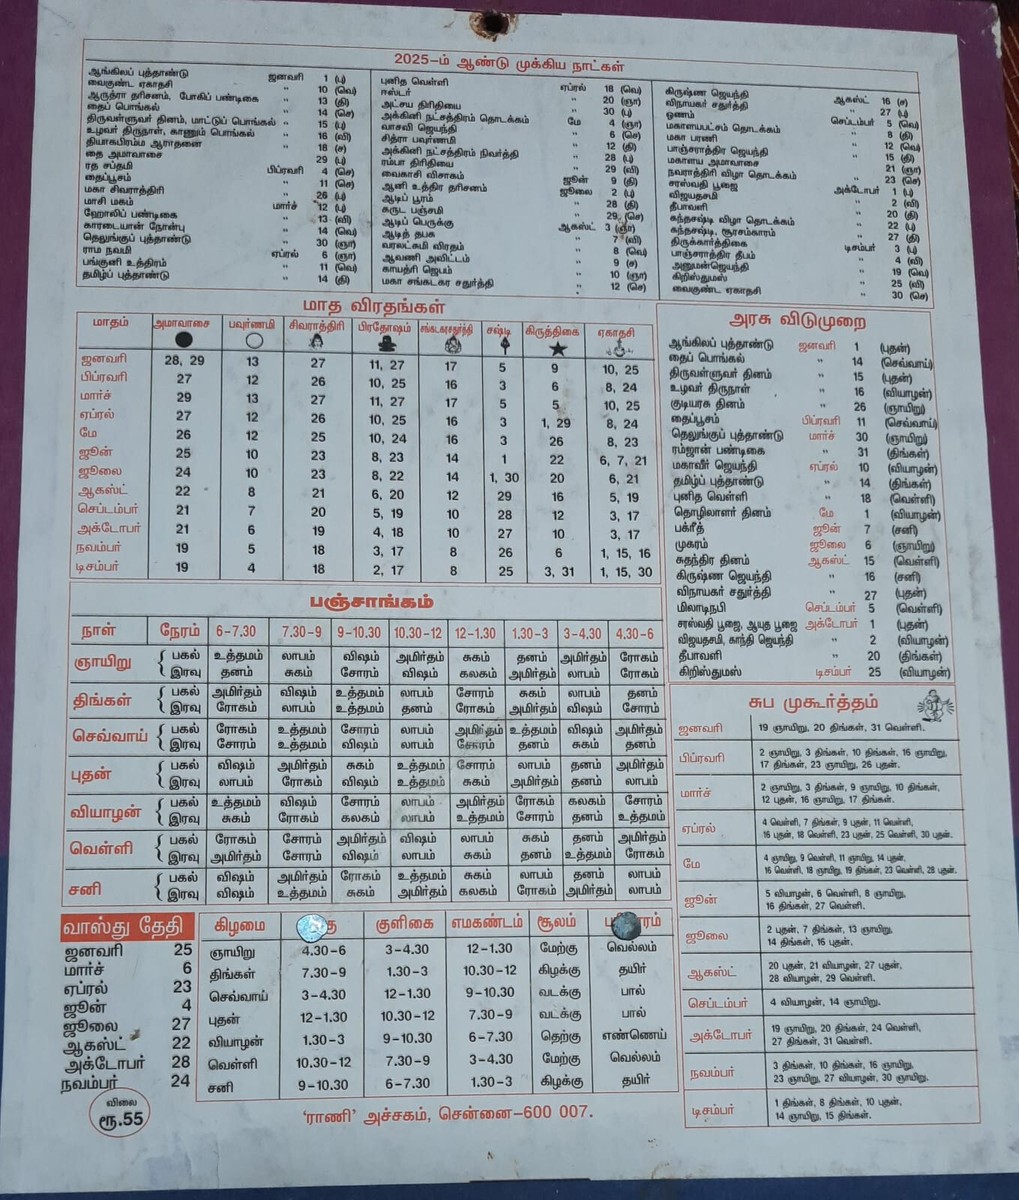 2025-ம் ஆண்டு முக்கிய நாட்கள்
ஆங்கிலப் புத்தாண்டு ஜனவரி 1 (பு)
வைகுண்ட ஏகாதசி " 10 (வெ)
ஆருத்ரா தரிசனம், போகிப் பண்டிகை " 13 (தி)
தைப் பொங்கல் " 14 (செ)
திருவள்ளுவர் தினம், மாட்டுப் பொங்கல் " 15 (பு)
உழவர் திருநாள், காணும் பொங்கல் " 16 (வி)
தியாகபிரம்ம ஆராதனை " 18 (ச)
தை அமாவாசை " 29 (பு)
ரத சப்தமி பிப்ரவரி 4 (செ)
தைப்பூசம் " 11 (செ)
மகா சிவராத்திரி " 26 (பு)
மாசி மகம் மார்ச் 12 (பு)
ஹோலிப் பண்டிகை " 13 (வி)
காரடையான் நோன்பு " 14 (வெ)
தெலுங்குப் புத்தாண்டு " 30 (ஞா)
ராம நவமி ஏப்ரல் 6 (ஞா)
பங்குனி உத்திரம் " 11 (வெ)
தமிழ்ப் புத்தாண்டு " 14 (தி)
புனித வெள்ளி ஏப்ரல் 18 (வெ)
ஈஸ்டர் " 20 (ஞா)
அட்சய திரிதியை " 30 (பு)
அக்கினி நட்சத்திரம் தொடக்கம் மே 4 (ஞா)
வாசவி ஜெயந்தி " 6 (செ)
சித்ரா பவுர்ணமி " 12 (தி)
அக்கினி நட்சத்திரம் நிவர்த்தி " 28 (பு)
ரம்பா திரிதியை " 29 (வி)
வைகாசி விசாகம் ஜூன் 9 (தி)
ஆனி உத்திர தரிசனம் ஜூலை 2 (பு)
ஆடிப் பூரம் " 28 (தி)
கருட பஞ்சமி " 29 (செ)
ஆடிப் பெருக்கு ஆகஸ்ட் 3 (ஞா)
ஆடித் தபசு " 7 (வி)
வரலட்சுமி விரதம் " 8 (வெ)
ஆவணி அவிட்டம் " 9 (ச)
காயத்ரி ஜெபம் " 10 (ஞா)
மகா சங்கடகர சதுர்த்தி " 12 (செ)
கிருஷ்ண ஜெயந்தி ஆகஸ்ட் 16 (ச)
விநாயகர் சதுர்த்தி " 27 (பு)
ஓணம் செப்டம்பர் 5 (வெ)
மகாளயபட்சம் தொடக்கம் " 8 (தி)
மகா பரணி " 12 (வெ)
பாஞ்சராத்திர ஜெயந்தி " 15 (தி)
மகாளய அமாவாசை " 21 (ஞா)
நவராத்திரி விழா தொடக்கம் " 23 (செ)
சரஸ்வதி பூஜை அக்டோபர் 1 (பு)
விஜயதசமி " 2 (வி)
தீபாவளி " 20 (தி)
கந்தசஷ்டி விழா தொடக்கம் " 22 (பு)
கந்தசஷ்டி, சூரசம்காரம் " 27 (தி)
திருக்கார்த்திகை டிசம்பர் 3 (பு)
பாஞ்சராத்திர தீபம் " 4 (வி)
அனுமன்ஜெயந்தி " 19 (வெ)
கிறிஸ்துமஸ் " 25 (வி)
வைகுண்ட ஏகாதசி " 30 (செ)
மாத விரதங்கள்
மாதம் அமாவாசை பவுர்ணமி சிவராத்திரி பிரதோஷம் சங்கடகரசதுர்த்தி சஷ்டி கிருத்திகை ஏகாதசி
ஜனவரி 28, 29 13 27 11, 27 17 5 9 10, 25
பிப்ரவரி 27 12 26 10, 25 16 3 6 8, 24
மார்ச் 29 13 27 11, 27 17 5 5 10, 25
ஏப்ரல் 27 12 26 10, 25 16 3 1, 29 8, 24
மே 26 12 25 10, 24 16 3 26 8, 23
ஜூன் 25 10 23 8, 23 14 1 22 6, 7, 21
ஜூலை 24 10 23 8, 22 14 1, 30 20 6, 21
ஆகஸ்ட் 22 8 21 6, 20 12 29 16 5, 19
செப்டம்பர் 21 7 20 5, 19 10 28 12 3, 17
அக்டோபர் 21 6 19 4, 18 10 27 10 3, 17
நவம்பர் 19 5 18 3, 17 8 26 6 1, 15, 16
டிசம்பர் 19 4 18 2, 17 8 25 3, 31 1, 15, 30
அரசு விடுமுறை
ஆங்கிலப் புத்தாண்டு ஜனவரி 1 (புதன்)
தைப் பொங்கல் " 14 (செவ்வாய்)
திருவள்ளுவர் தினம் " 15 (புதன்)
உழவர் திருநாள் " 16 (வியாழன்)
குடியரசு தினம் " 26 (ஞாயிறு)
தைப்பூசம் பிப்ரவரி 11 (செவ்வாய்)
தெலுங்குப் புத்தாண்டு மார்ச் 30 (ஞாயிறு)
ரம்ஜான் பண்டிகை " 31 (திங்கள்)
மகாவீர் ஜெயந்தி ஏப்ரல் 10 (வியாழன்)
தமிழ்ப் புத்தாண்டு " 14 (திங்கள்)
புனித வெள்ளி " 18 (வெள்ளி)
தொழிலாளர் தினம் மே 1 (வியாழன்)
பக்ரீத் ஜூன் 7 (சனி)
முகரம் ஜூலை 6 (ஞாயிறு)
சுதந்திர தினம் ஆகஸ்ட் 15 (வெள்ளி)
கிருஷ்ண ஜெயந்தி " 16 (சனி)
விநாயகர் சதுர்த்தி " 27 (புதன்)
மிலாடிநபி செப்டம்பர் 5 (வெள்ளி)
சரஸ்வதி பூஜை, ஆயுத பூஜை அக்டோபர் 1 (புதன்)
விஜயதசமி, காந்தி ஜெயந்தி " 2 (வியாழன்)
தீபாவளி " 20 (திங்கள்)
கிறிஸ்துமஸ் டிசம்பர் 25 (வியாழன்)
பஞ்சாங்கம்
நாள் நேரம் 6-7.30 7.30-9 9-10.30 10.30-12 12-1.30 1.30-3 3-4.30 4.30-6
ஞாயிறு பகல் உத்தமம் லாபம் விஷம் அமிர்தம் சுகம் தனம் அமிர்தம் ரோகம்
இரவு தனம் சுகம் சோரம் விஷம் கலகம் அமிர்தம் லாபம் சுகம்
திங்கள் பகல் அமிர்தம் விஷம் உத்தமம் லாபம் சோரம் சுகம் லாபம் தனம்
இரவு ரோகம் லாபம் உத்தமம் தனம் சோரம் அமிர்தம் விஷம் உத்தமம்
செவ்வாய் பகல் ரோகம் உத்தமம் சோரம் லாபம் அமிர்தம் உத்தமம் விஷம் அமிர்தம்
இரவு சோரம் உத்தமம் விஷம் லாபம் சோரம் தனம் சுகம் தனம்
புதன் பகல் விஷம் அமிர்தம் சுகம் உத்தமம் சோரம் லாபம் தனம் அமிர்தம்
இரவு லாபம் ரோகம் விஷம் உத்தமம் சுகம் அமிர்தம் தனம் லாபம்
வியாழன் பகல் உத்தமம் விஷம் சோரம் லாபம் அமிர்தம் ரோகம் கலகம் சோரம்
இரவு சுகம் ரோகம் கலகம் லாபம் உத்தமம் சோரம் தனம் உத்தமம்
வெள்ளி பகல் ரோகம் சோரம் அமிர்தம் விஷம் லாபம் சுகம் தனம் அமிர்தம்
இரவு அமிர்தம் சோரம் விஷம் லாபம் சுகம் தனம் உத்தமம் ரோகம்
சனி பகல் விஷம் அமிர்தம் ரோகம் உத்தமம் சோரம் லாபம் தனம் லாபம்
இரவு விஷம் உத்தமம் சுகம் அமிர்தம் கலகம் ரோகம் அமிர்தம் லாபம்
சுப முகூர்த்தம்
ஜனவரி 19 ஞாயிறு, 20 திங்கள், 31 வெள்ளி.
பிப்ரவரி 2 ஞாயிறு, 3 திங்கள், 10 திங்கள், 16 ஞாயிறு,
17 திங்கள், 23 ஞாயிறு, 26 புதன்.
மார்ச் 2 ஞாயிறு, 3 திங்கள், 9 ஞாயிறு, 10 திங்கள்,
12 புதன், 16 ஞாயிறு, 17 திங்கள்.
ஏப்ரல் 4 வெள்ளி, 7 திங்கள், 9 புதன், 11 வெள்ளி,
16 புதன், 18 வெள்ளி, 23 புதன், 25 வெள்ளி, 30 புதன்.
மே 4 ஞாயிறு, 9 வெள்ளி, 11 ஞாயிறு, 14 புதன்,
16 வெள்ளி, 18 ஞாயிறு, 19 திங்கள், 23 வெள்ளி, 28 புதன்.
ஜூன் 5 வியாழன், 6 வெள்ளி, 8 ஞாயிறு,
16 திங்கள், 27 வெள்ளி.
ஜூலை 2 புதன், 7 திங்கள், 13 ஞாயிறு,
14 திங்கள், 16 புதன்.
ஆகஸ்ட் 20 புதன், 21 வியாழன், 27 புதன்,
28 வியாழன், 29 வெள்ளி.
செப்டம்பர் 4 வியாழன், 14 ஞாயிறு.
அக்டோபர் 19 ஞாயிறு, 20 திங்கள், 24 வெள்ளி,
27 திங்கள், 31 வெள்ளி.
நவம்பர் 3 திங்கள், 10 திங்கள், 16 ஞாயிறு,
23 ஞாயிறு, 27 வியாழன், 30 ஞாயிறு.
டிசம்பர் 1 திங்கள், 8 திங்கள், 10 புதன்,
14 ஞாயிறு, 15 திங்கள்.
வாஸ்து தேதி
ஜனவரி 25
மார்ச் 6
ஏப்ரல் 23
ஜூன் 4
ஜூலை 27
ஆகஸ்ட் 22
அக்டோபர் 28
நவம்பர் 24
விலை
ரூ.55
கிழமை குளிகை எமகண்டம் சூலம்
ஞாயிறு 4.30-6 3-4.30 12-1.30 மேற்கு வெல்லம்
திங்கள் 7.30-9 1.30-3 10.30-12 கிழக்கு தயிர்
செவ்வாய் 3-4.30 12-1.30 9-10.30 வடக்கு பால்
புதன் 12-1.30 10.30-12 7.30-9 வடக்கு பால்
வியாழன் 1.30-3 9-10.30 6-7.30 தெற்கு எண்ணெய்
வெள்ளி 10.30-12 7.30-9 3-4.30 மேற்கு வெல்லம்
சனி 9-10.30 6-7.30 1.30-3 கிழக்கு தயிர்
'ராணி' அச்சகம், சென்னை-600 007.